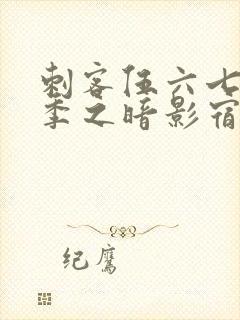 刺客伍六七
季之暗影宿
纪鹰